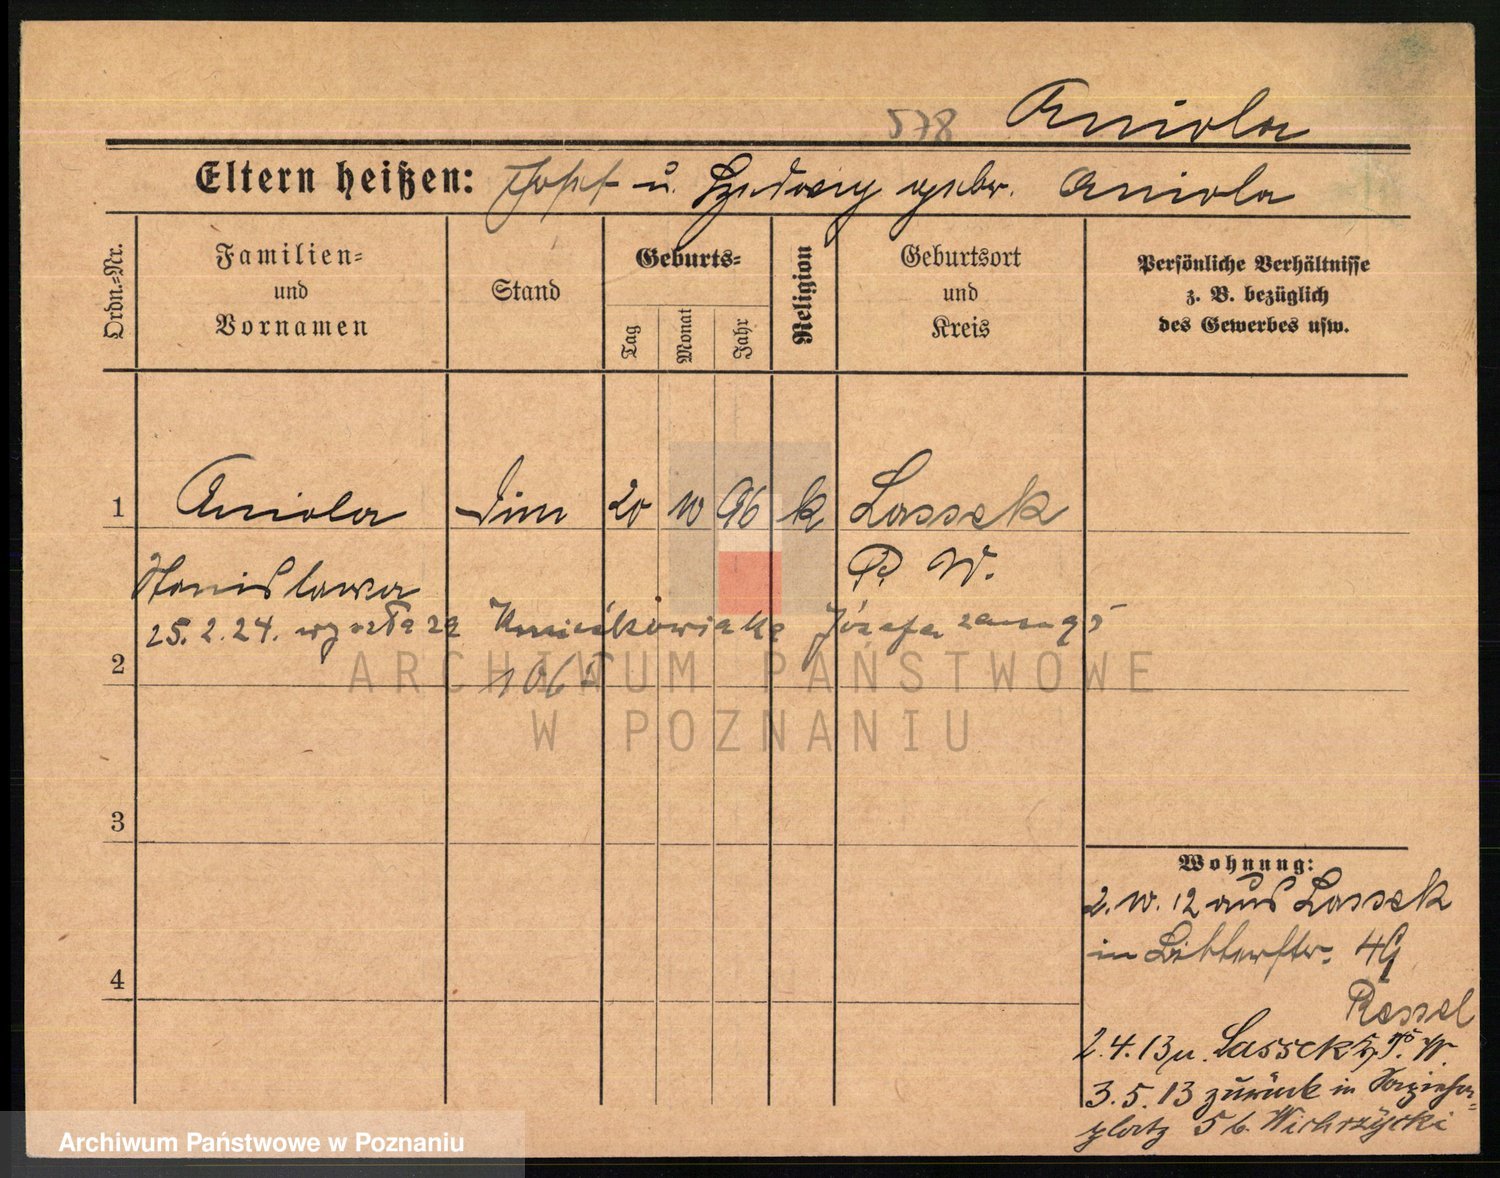 578 Aniola
Eltern heißen: Josef u. Hedwig gebor. Aniola
Ordn.-Nr.
Familien- und Vornamen
Stand
Geburts-
Tag
Monat
Jahr
Religion
Geburtsort und Kreis
Persönliche Verhältnisse z. B. bezüglich des Gewerbes usw.
1 Aniola Dien 20 10 96 k Lassek
Stanislawa P. W.
25. 2. 24. wyszła za Kmiećkowiaka Józefa zamąż
2 1065
3
Wohnung:
2. 10. 12 aus Lassek
in Ritterstr. 4
4
Ressel
2. 4. 13 n. Lassek P. W.
3. 5. 13 zurück in Sapieha-
platz 5b. Wichrzycki
ARCHIWUM PAŃSTWOWE
W POZNANIU
Archiwum Państwowe w Poznaniu